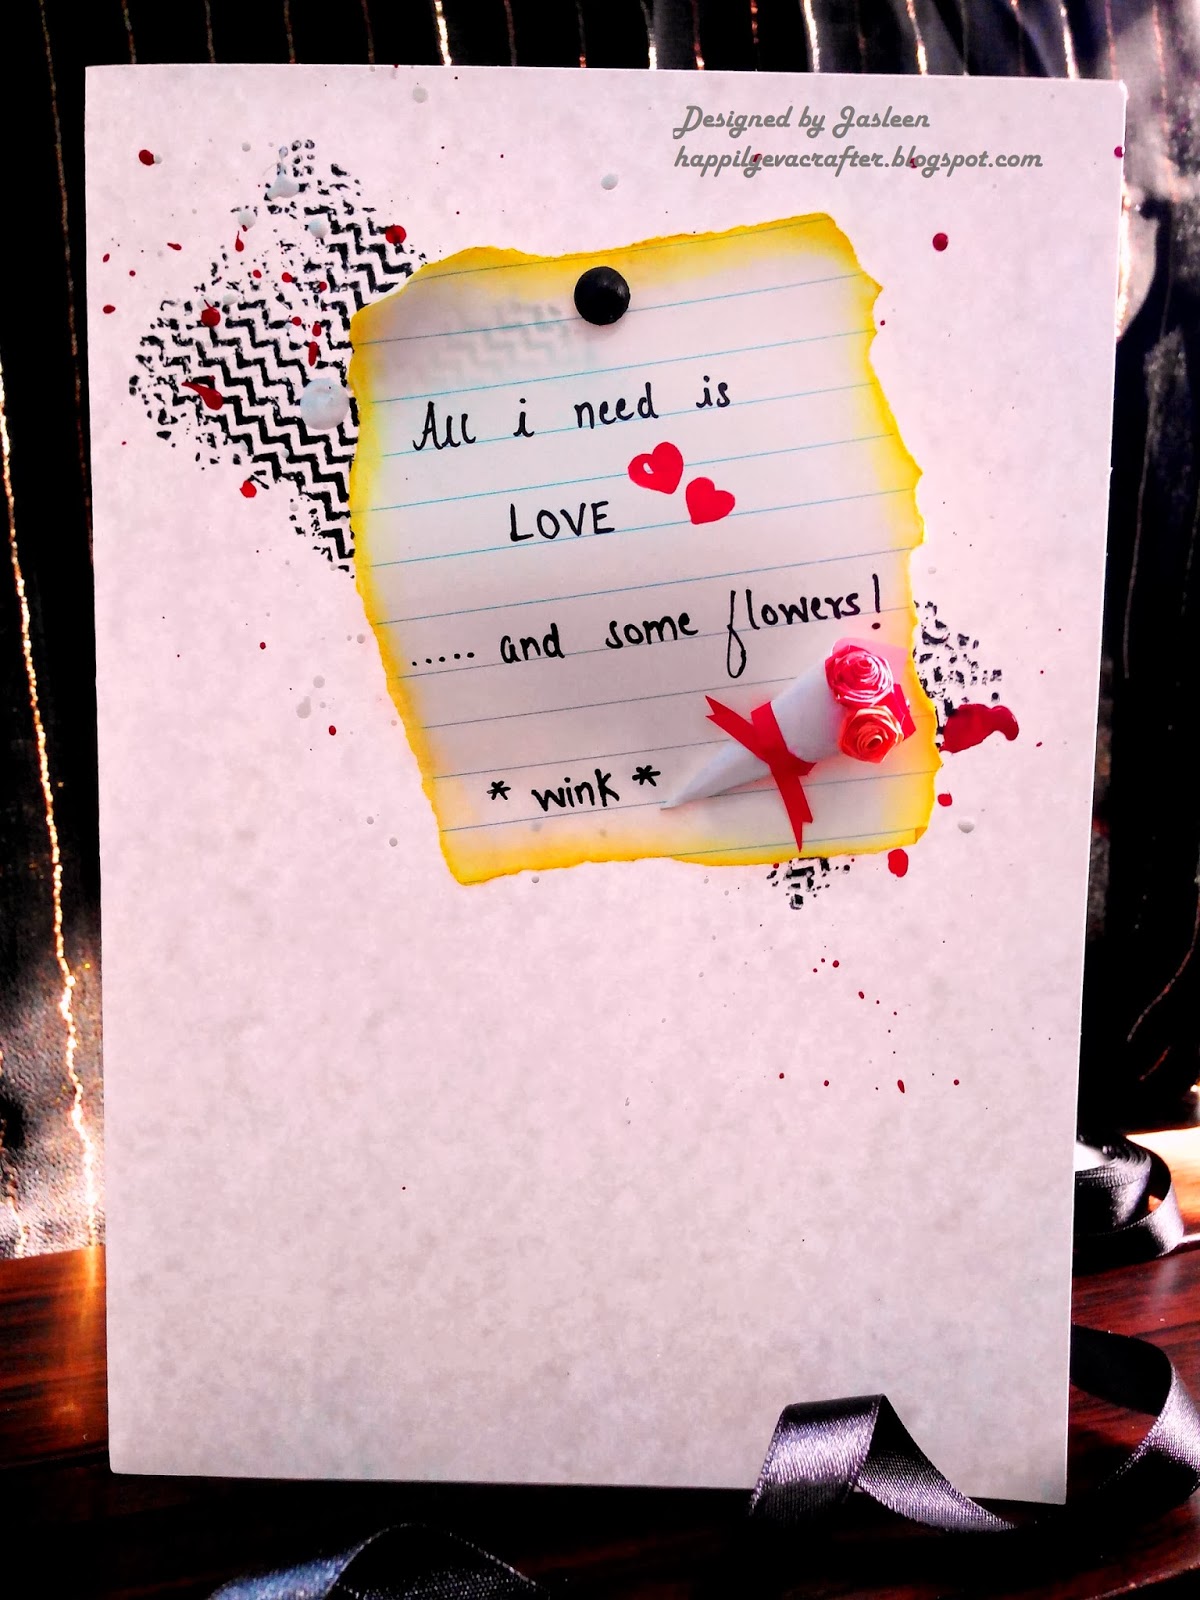 Designed by Jasleen
happilyevacrafter.blogspot.com
All i need is
LOVE
..... and some flowers!
* wink *